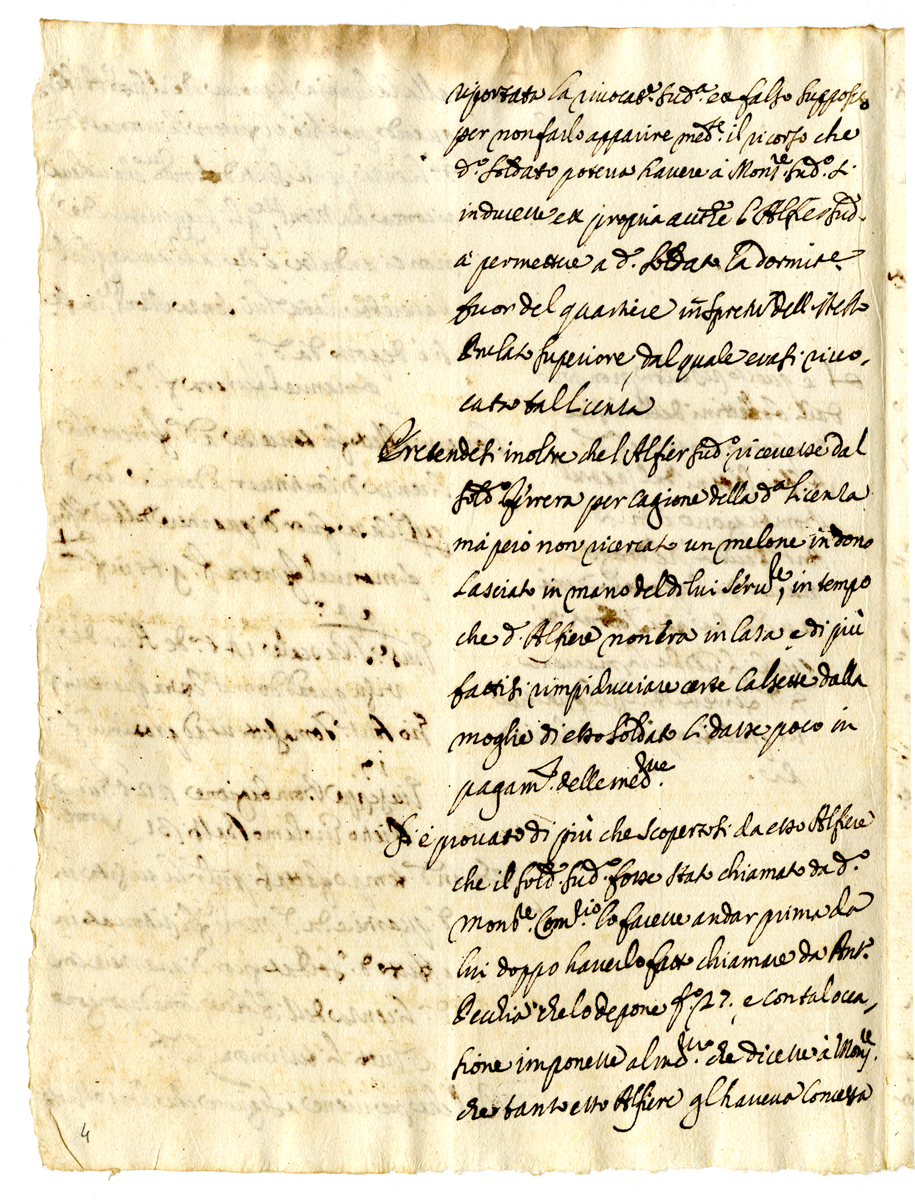 riportata la rivocat.e sud.a ex falso suppos.o
per non farlo apparire med.te il ricorso che
d.o Soldato poteva havere à Mons.re sud.o si
inducette ex propria aucth.e l'Alfier sud.o
à permettere a d.o Soldato la dormit.e
fuor del quartiere in spretu dell'istesso
Prelato Superiore, dal quale erasi rivo-
cata tal licenza
Pretendesi inoltre che l'Alfier sud.o ricevesse dal
sold.o per cagione della d.a licenza
mà però non ricercato un melone in dono
lasciato in mano del di lui Serv.le, in tempo
che d.o Alfiere non era in Casa e di più
fattisi rimpiducciare certe Calsette dalla
moglie di esso Soldato li dasse poco in
pagam.to delle med.me
Si è provato di più che scopertosi da esso Alfiere
che il sold.o sud.o fosse stato chiamato da d.o
Mons.re Com.rio lo facesse andar prima da
lui doppo haverlo fatto chiamare da Ant.o
che lo depone f.o 127. e con tal occa-
sione imponesse al med.mo che dicesse à Mons.re
che tanto esso Alfiere gl'haveva concessa
4